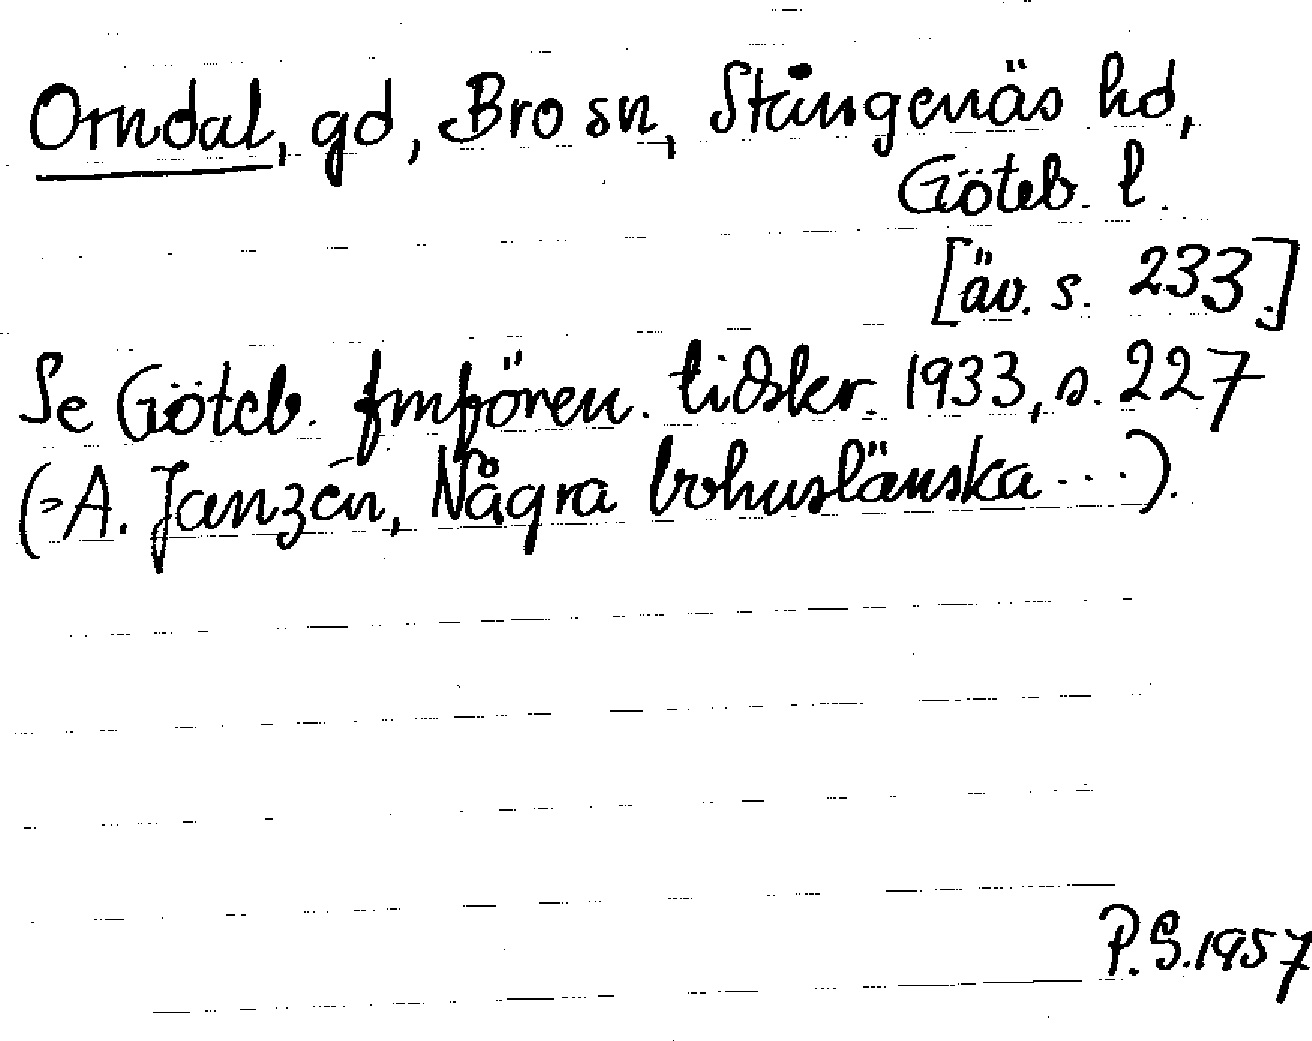 Orndal, gd, Bro sn, Stångenäs hd,
Göteb. l.
[äv. s. 233.]
Se Göteb. fmfören. tidskr. 1933, s. 227
(=A. Janzén, Några bohuslänska ...).
P.S. 1957